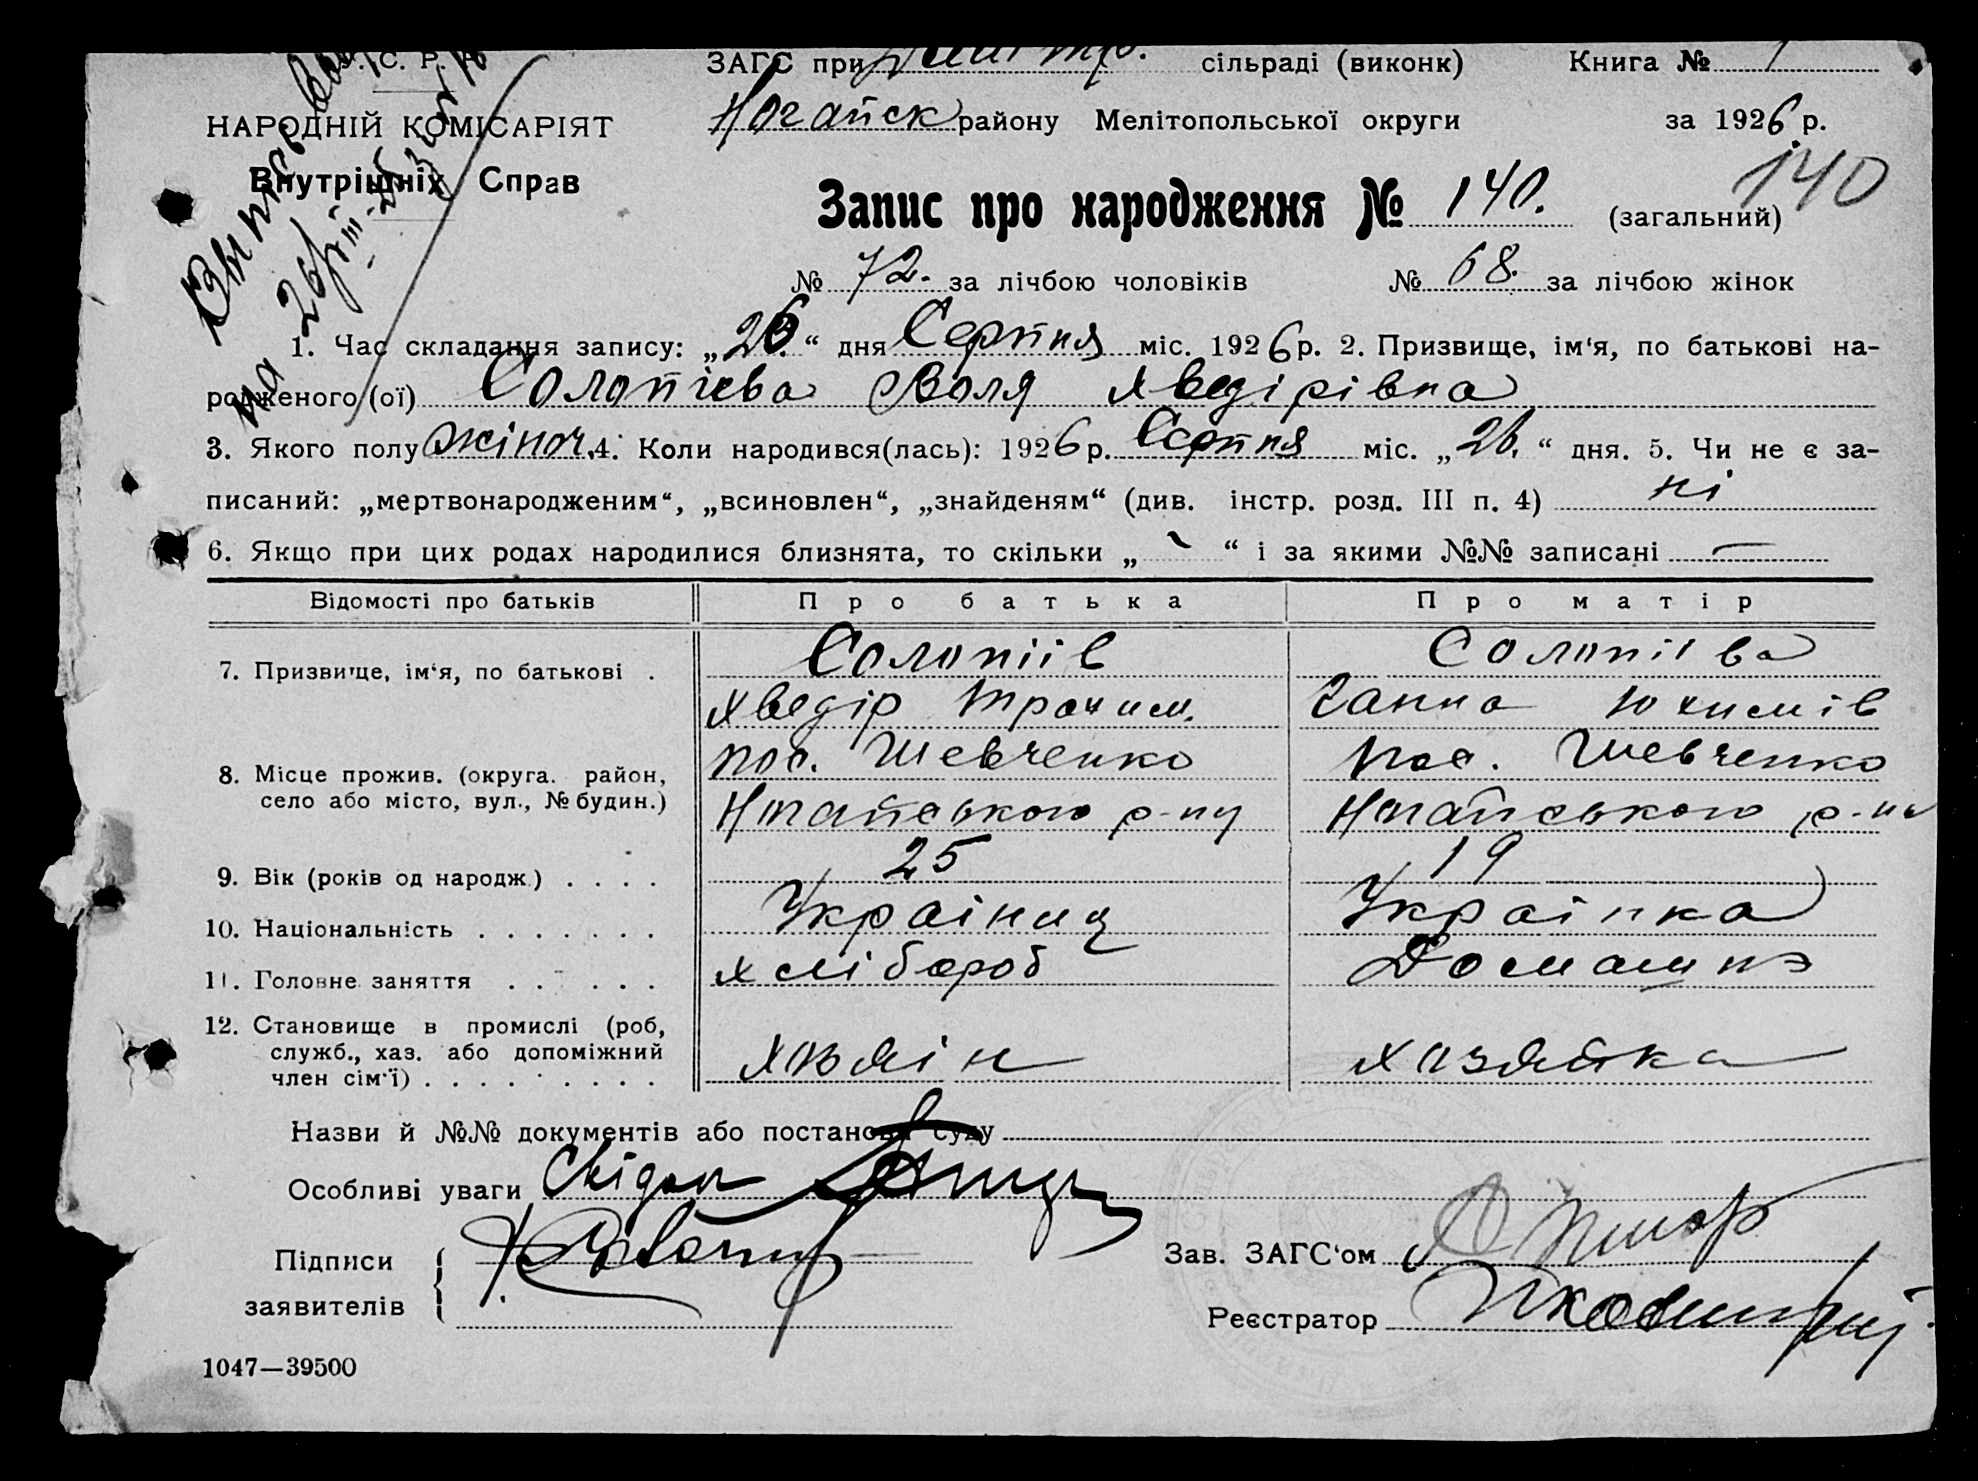 С. Р. Р.
ЗАГС при сільраді (виконк) Книга № 1
НАРОДНІЙ КОМІСАРІЯТ
Ногайск району Мелітопольської округи за 1926 р.
Внутрішніх Справ
140
Запис про народження № 140. (загальний)
№ 72. за лічбою чоловіків № 68. за лічбою жінок
1. Час складання запису: „26.“ дня Серпня міс. 1926 р. 2. Призвище, ім‘я, по батькові на-
родженого (ої) Солопієва Воля Хведірівна
3. Якого полу жіноч. 4. Коли народився(лась): 1926 р. Серпня міс. „26.“ дня. 5. Чи не є за-
писаний: „мертвонародженим“, „всиновлен“, „знайденям“ (див. інстр. розд. III п. 4) ні
6. Якщо при цих родах народилися близнята, то скільки „ - “ і за якими №№ записані —
Відомості про батьків Про батька Про матір
7. Призвище, ім‘я, по батькові . Солопіїв Солопіїва
Хведір Трохим. Ганна Юхимів
8. Місце прожив. (округа. район, пос. Шевченко пос. Шевченко
село або місто, вул., № будин.) Ногайського р-ну Ногайського р-ну
9. Вік (років од народж.) . . . . 25 19
10. Національність . . . . . . . Українец Українка
11. Головне заняття . . . . . . хлібороб Домашнэ
12. Становище в промислі (роб,
служб., хаз. або допоміжний хозяін хазяйка
член сім‘ї) . . . . . . . . .
Назви й №№ документів або постанови суду
Особливі уваги Свідки
Підписи
заявителів
Зав. ЗАГС‘ом
Реєстратор
1047—39500